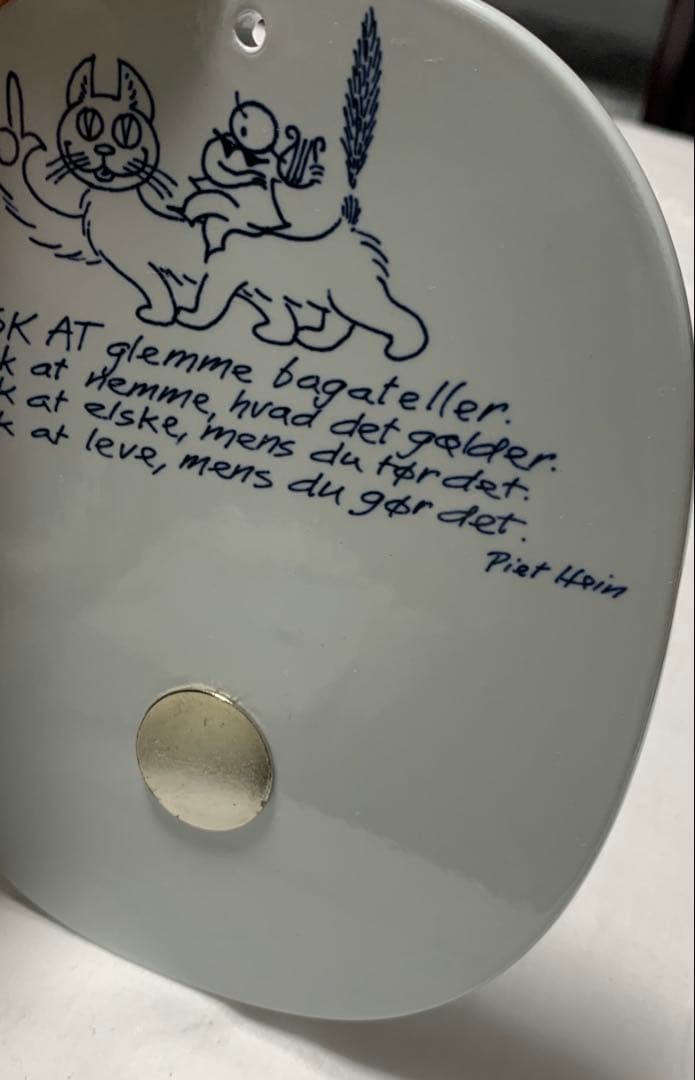 SK AT glemme bagateller.
k at nemme, hvad det gælder.
k at elske, mens du tør det.
k at leve, mens du gør det.
Piet Hein